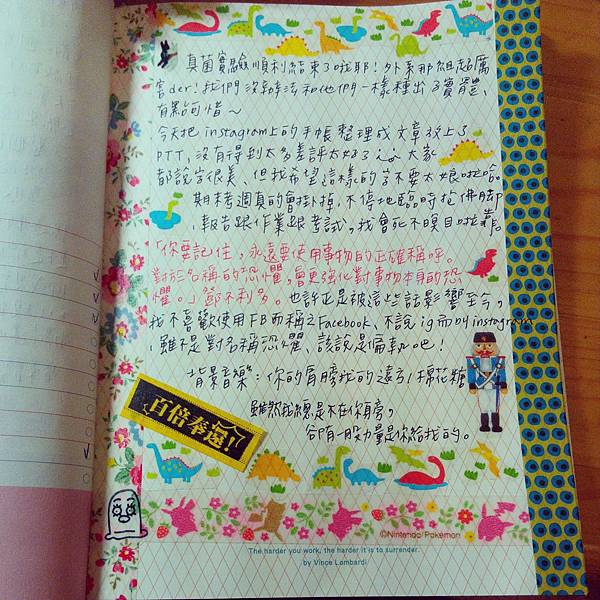 真菌實驗順利結束了啦耶！外系那組超厲
害der！我們沒辦法和他們一樣種出子實體、
有點可惜～
今天把instagram上的手帳整理成文章放上了
PTT，沒有得到太多差評太好了 大家
都說字很美，但我希望這樣的字不要太娘啦哈。
期末考週真的會掛掉，不停地臨時抱佛腳
，報告跟作業跟考試，我會死不瞑目啦靠。
「你要記住，永遠要使用事物的正確稱呼。
對於名稱的恐懼，會更強化對事物本身的恐
懼。」鄧不利多。也許正是被這些話影響至今，
我不喜歡使用FB而稱之Facebook、不說ig而by instagram
，雖不是對名稱恐懼、該說是偏執吧！
背景音樂：你的肩膀我的遠方／棉花糖
雖然我總是不在你身旁，
今所有一股力量是你給我的。
百倍奉還！
©Nintendo/Pokémon
The harder you work, the harder it is to surrender.
by Vince Lombardi